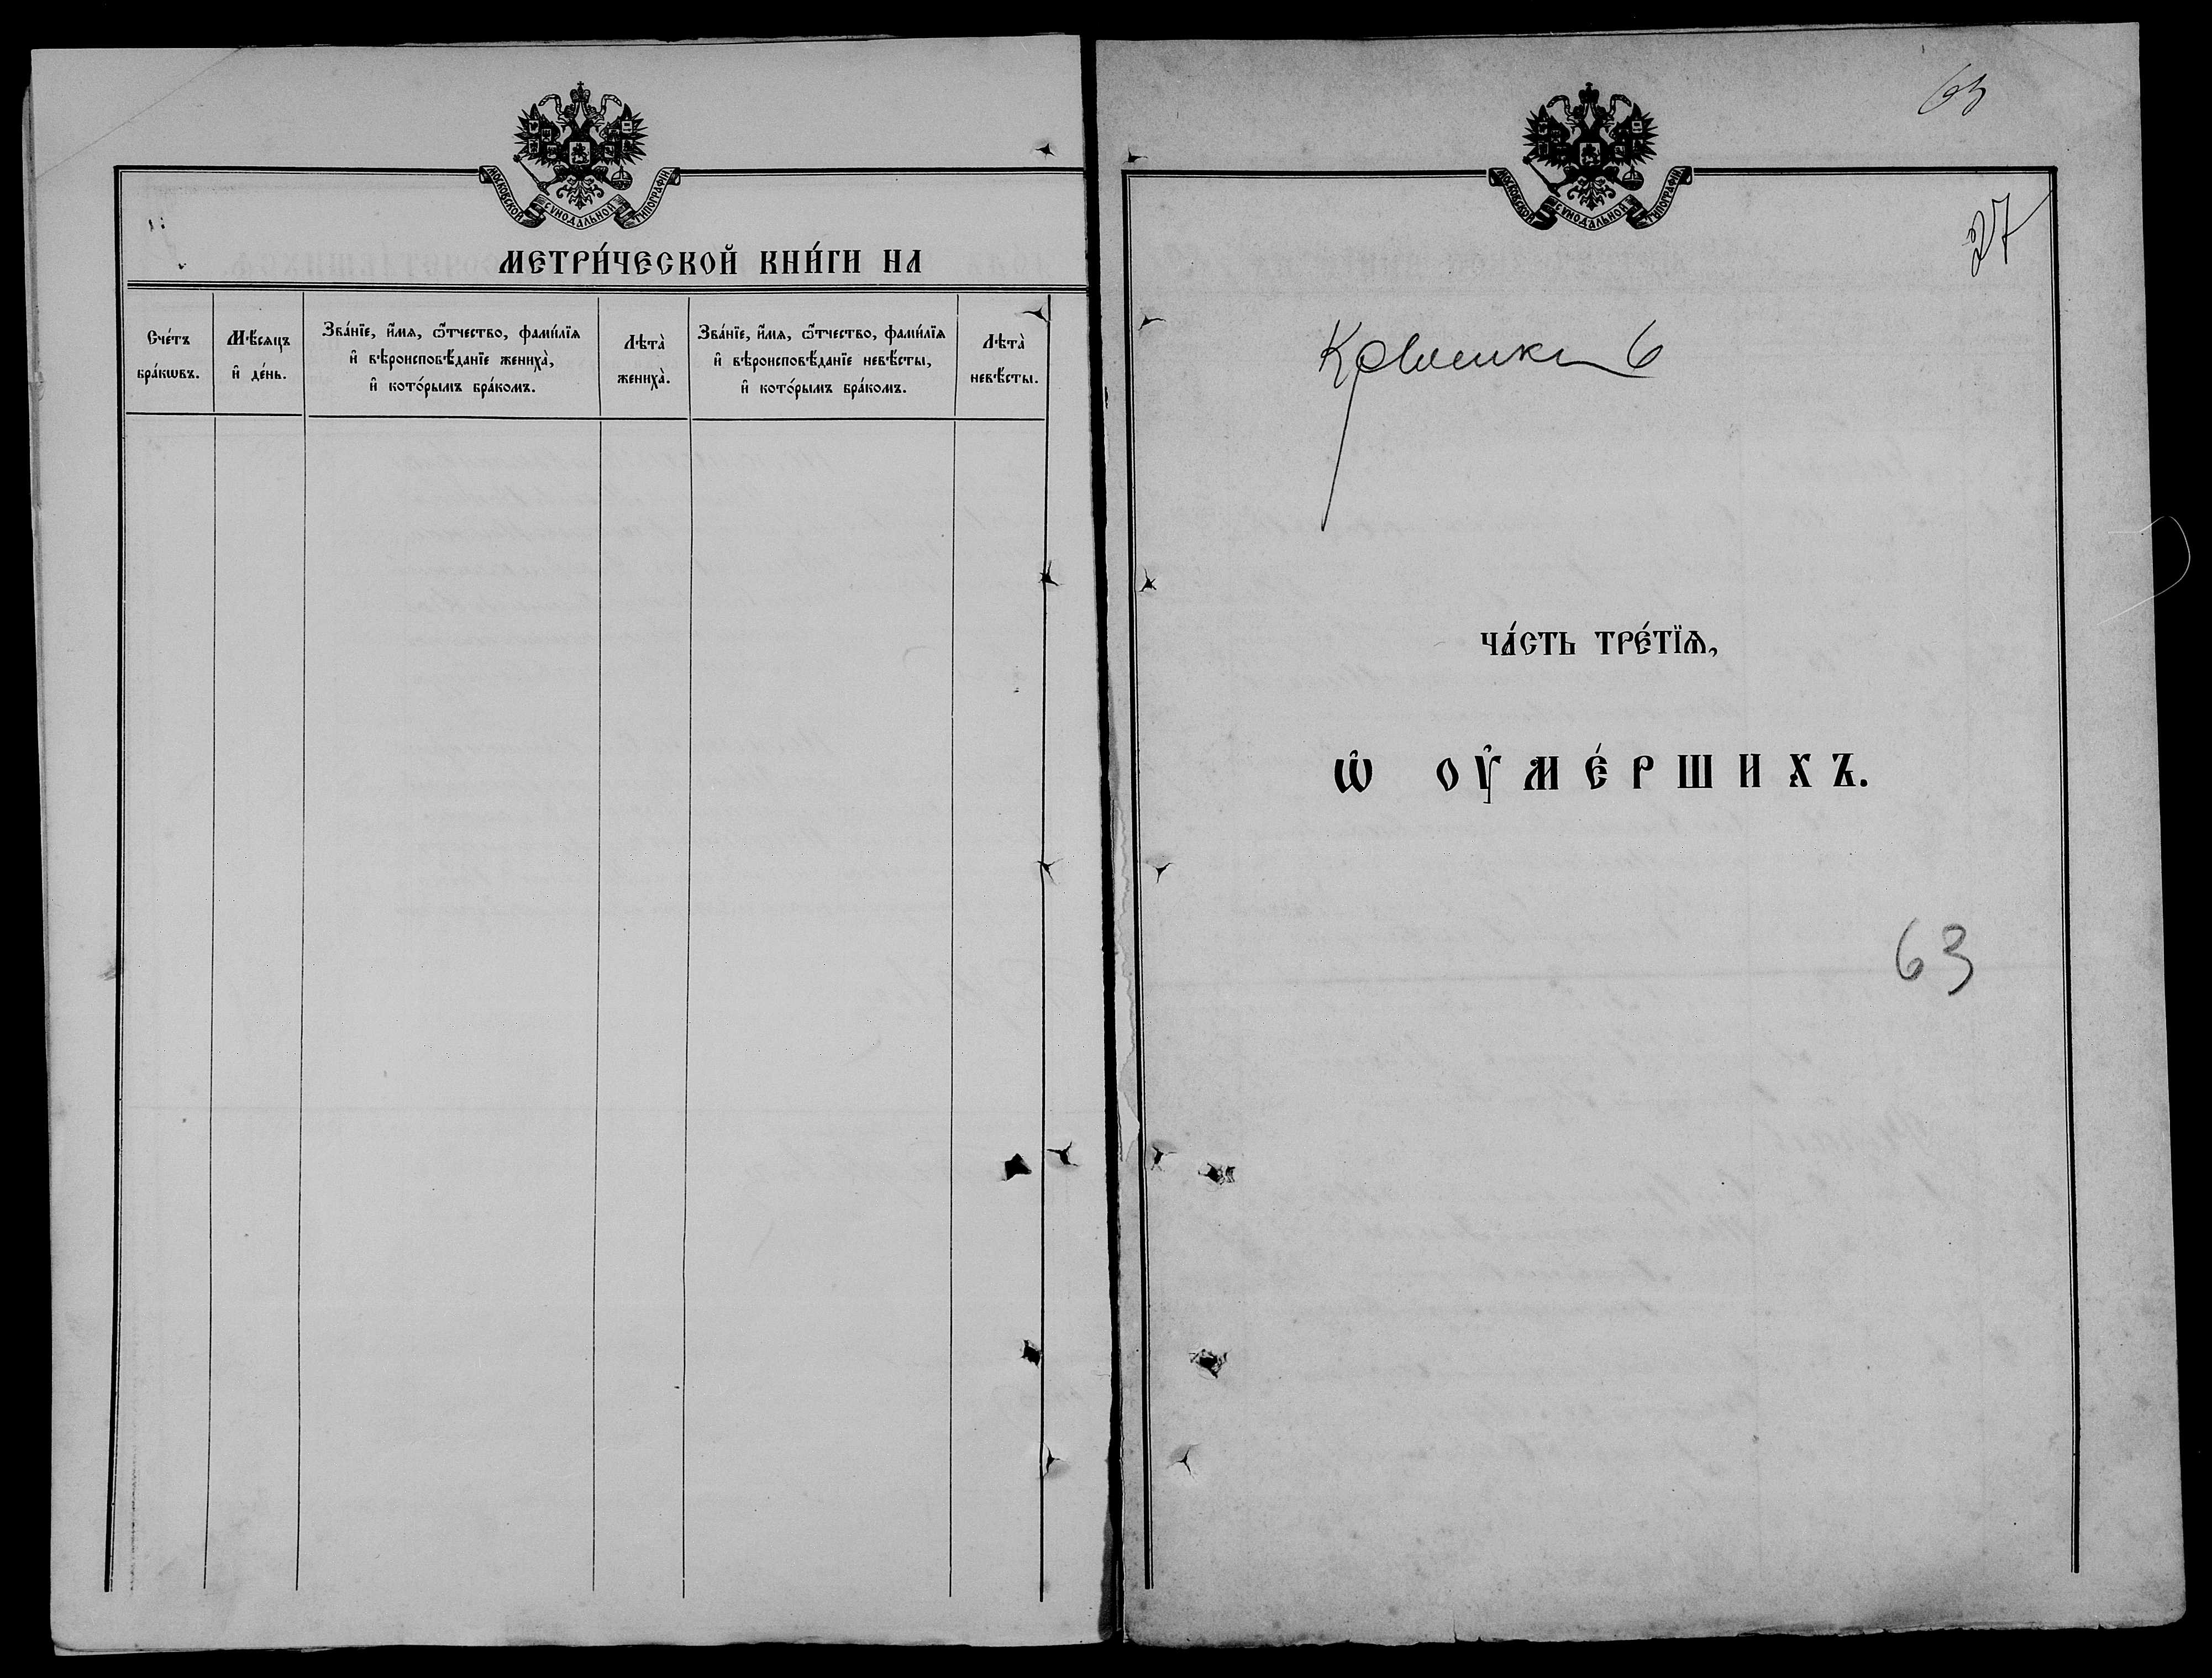 МОСКОВСКОЙ СѴНОДАЛЬНОЙ ТИПОГРАФІИ
МЕТРИ́ЧЕСКОЙ КНИ́ГИ НА
Сче́тъ бра́кѡвъ.
Мѣ́сяцъ и҆ де́нь.
Зва́нїе, и҆́мѧ, ѿ́тчество, фамі́лїѧ
и҆ вѣроисповѣ́данїе жениха̀,
и҆ кото́рымъ бра́комъ.
Лѣта̀ жениха̀.
Зва́нїе, и҆́мѧ, ѿ́тчество, фамі́лїѧ
и҆ вѣроисповѣ́данїе невѣ́сты,
и҆ кото́рымъ бра́комъ.
Лѣта̀ невѣ́сты.
63
МОСКОВСКОЙ СѴНОДАЛЬНОЙ ТИПОГРАФІИ
27
6
ЧА́СТЬ ТРЕ́ТЇѦ,
Ѽ ОУ҆МЕ́РШИХЪ.
63